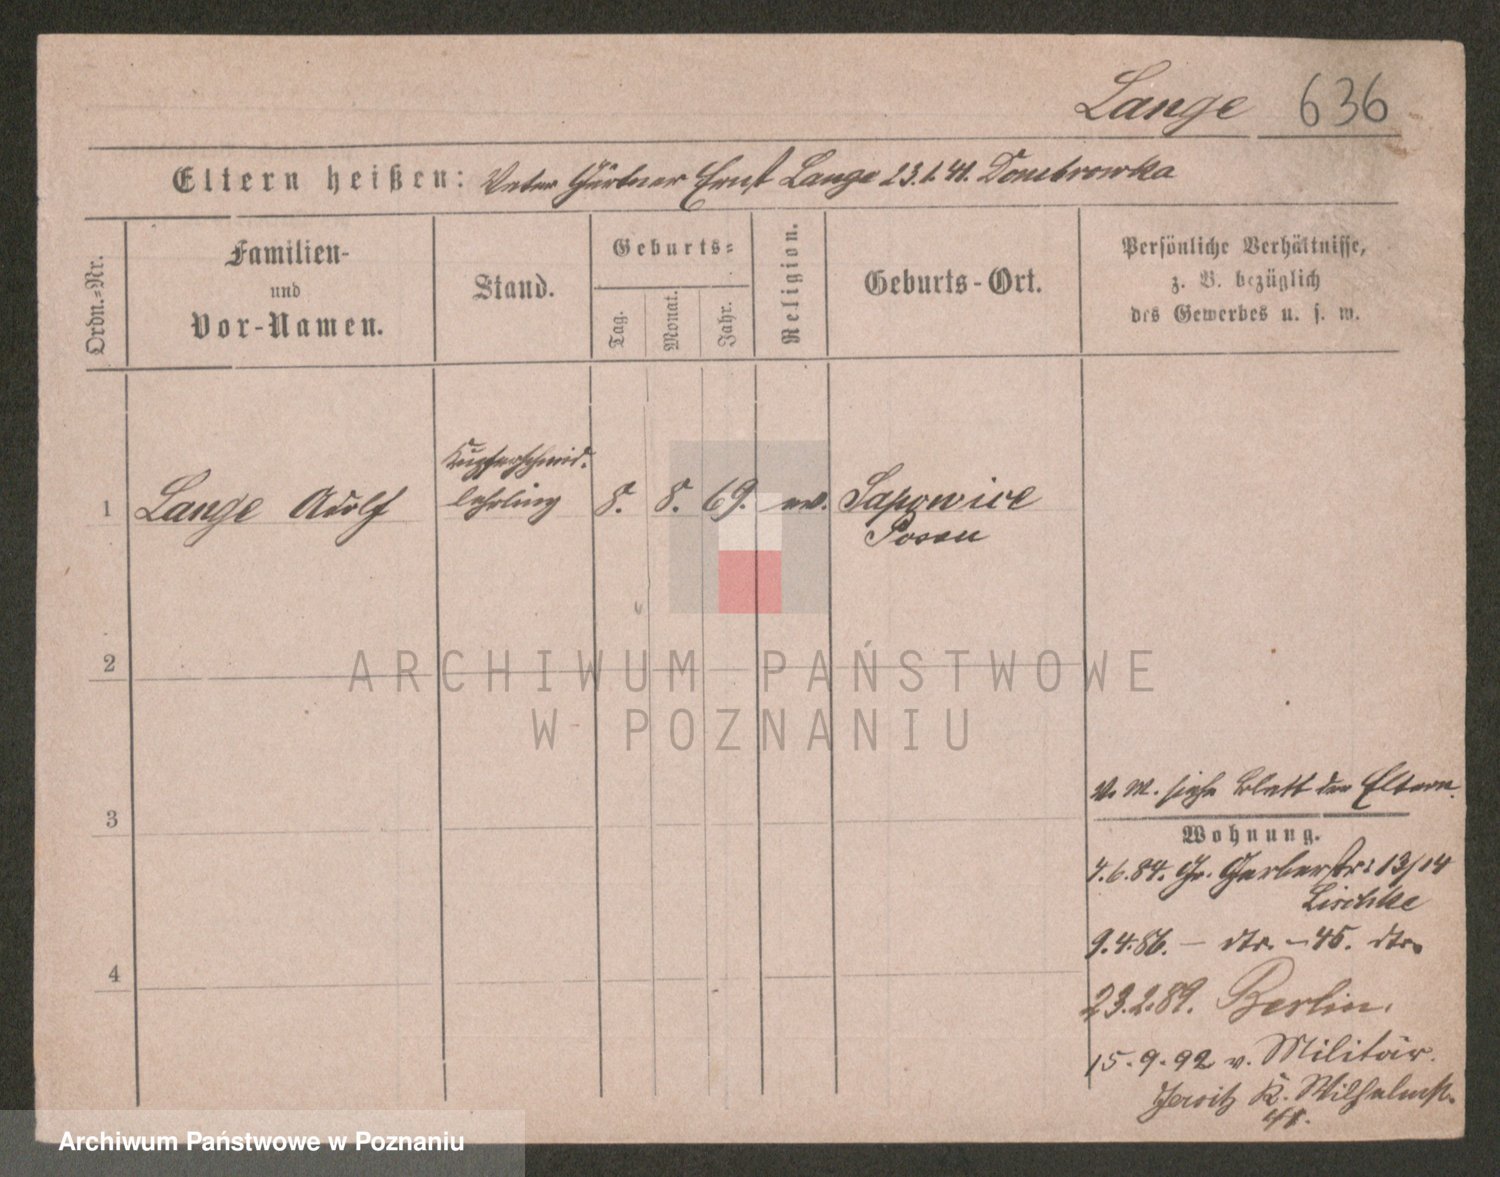 Lange 636
Eltern heißen: Vater Gärtner Ernst Lange 23.1.41. Dombrowka
Ordn.-Nr.
Familien-
und
Vor-Namen.
Stand.
Geburts-
Tag.
Monat.
Jahr.
Religion.
Geburts-Ort.
Persönliche Verhältnisse,
z. B. bezüglich
des Gewerbes u. s. w.
Kupferschmid.
1 Lange Adolf lehrling 8. 8. 69. ev. Sapowice
Posen
2
ARCHIWUM PAŃSTWOWE
W POZNANIU
3
v. W. siehe Blatt der Eltern.
Wohnung.
7.6.84. Gr. Gerberstr: 13/14
Lischke
9.4.86. — dto. — 45. dto.
4
23.2.89. Berlin.
15.9.92 v. Militär.
Jersitz K. Wilhelmst.
Archiwum Państwowe w Poznaniu